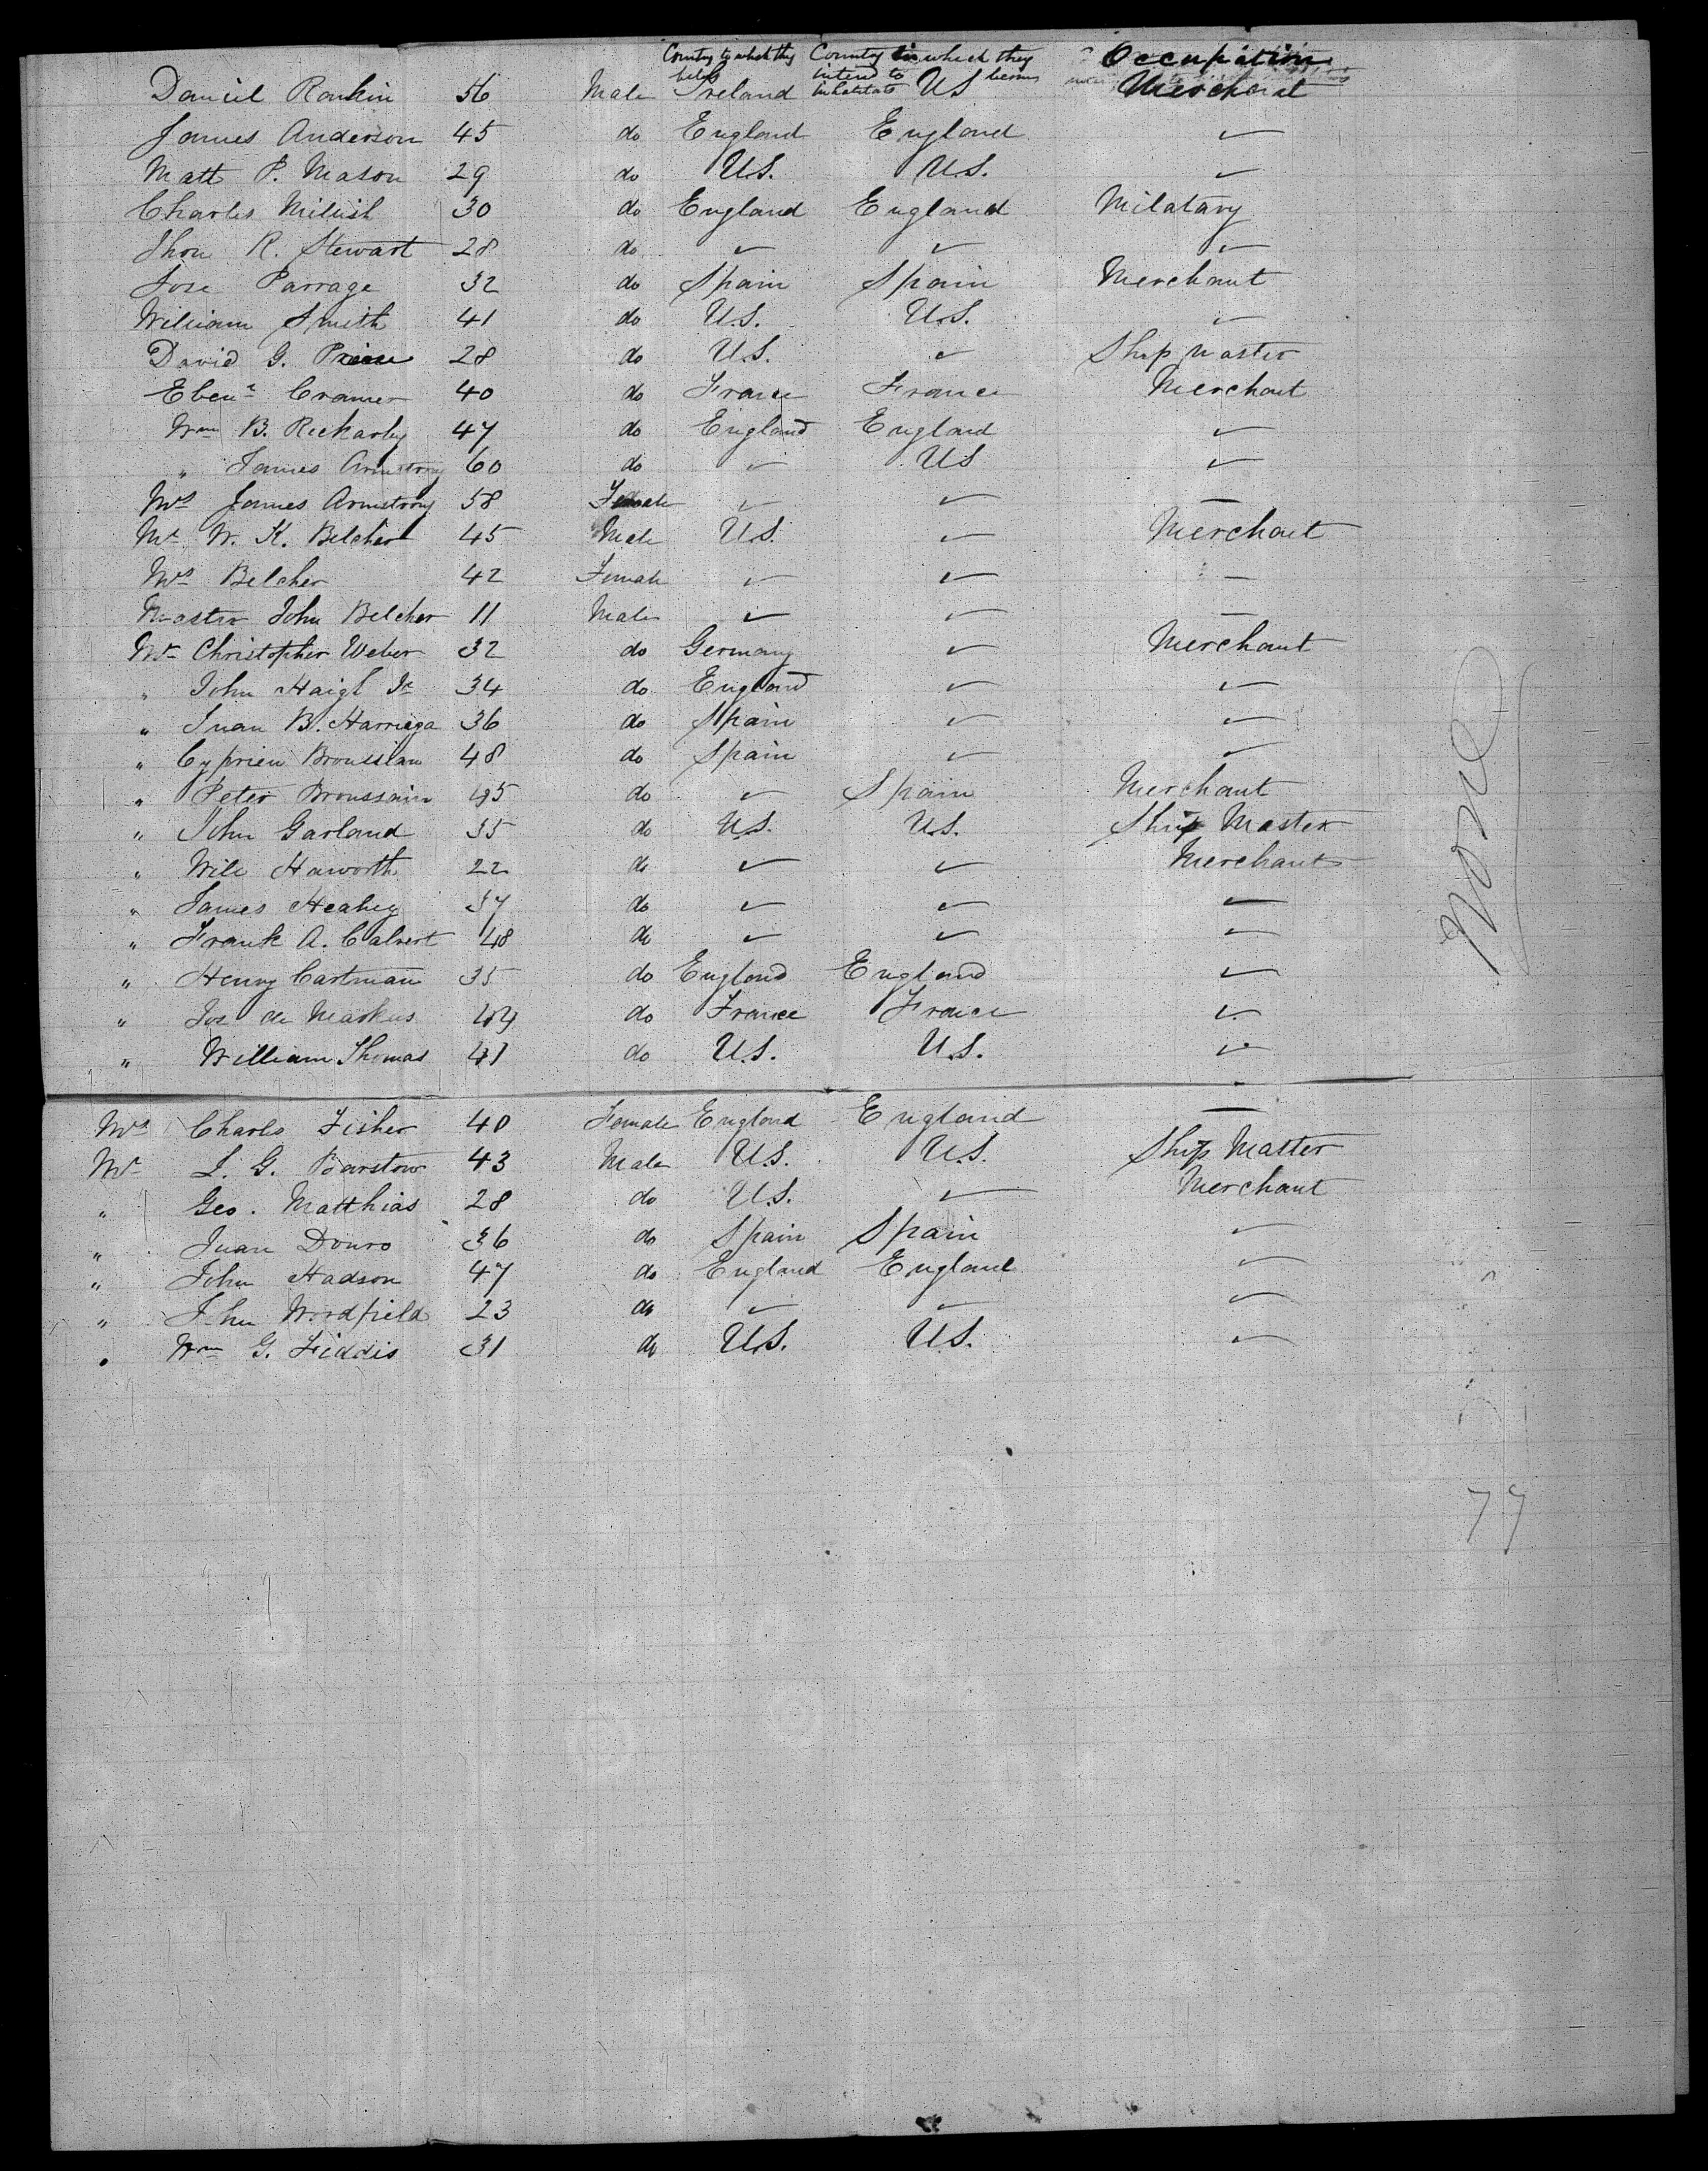 Country to which they belong Country in which they intend to become inhabitants Occupation
Daniel Rankin 56 Male Ireland US Merchant
James Anderson 45 do England England ✓
Matt P. Mason 29 do U.S. U.S. ✓
Charles 30 do England England Milatary
Thou R. Stewart 28 do ✓ ✓ ✓
Jose Parrage 32 do Spain Spain Merchant
William Smith 41 do U.S. U.S. ✓
David G. 28 do U.S. ✓ Ship Master
Ebenr Cramer 40 do France France Merchant
Wm B. Rickarby 47 do England England ✓
" James Armstrong 60 do ✓ US ✓
Mrs James Armstrong 58 Female ✓ ✓ —
Mr W. K. Belcher 45 Male U.S. ✓ Merchant
Mrs Belcher 42 Female ✓ ✓ —
Master John Belcher 11 Male ✓ ✓ —
Mr Christopher Weber 32 do Germany ✓ Merchant
" John Haigh Jr 34 do England ✓ ✓
" Juan B. Harriega 36 do Spain ✓ ✓
" Cyprien 48 do Spain ✓ ✓
" Peter Broussain do ✓ Spain Merchant
" John Garland 35 do U.S. U.S. Ship Master
" Will Haworth 22 do ✓ ✓ Merchant
" James Heahey 37 do ✓ ✓ ✓
" Frank A. Calvert 48 do ✓ ✓ ✓
" Henry Cartman 35 do England England ✓
" Jos de Markus do France France ✓
" William Thomas 41 do U.S. U.S. ✓
Mrs Charles Fisher 40 Female England England —
Mr L. G. Barstow 43 Male U.S. U.S. Ship Master
" Geo. Matthias 28 do U.S. ✓ Merchant
" Juan Douro 36 do Spain Spain ✓
" John Hadson 47 do England England ✓
" John Woodfield 23 do ✓ ✓ ✓
" Wm G. Fiddis 31 do U.S. U.S. ✓
None
77